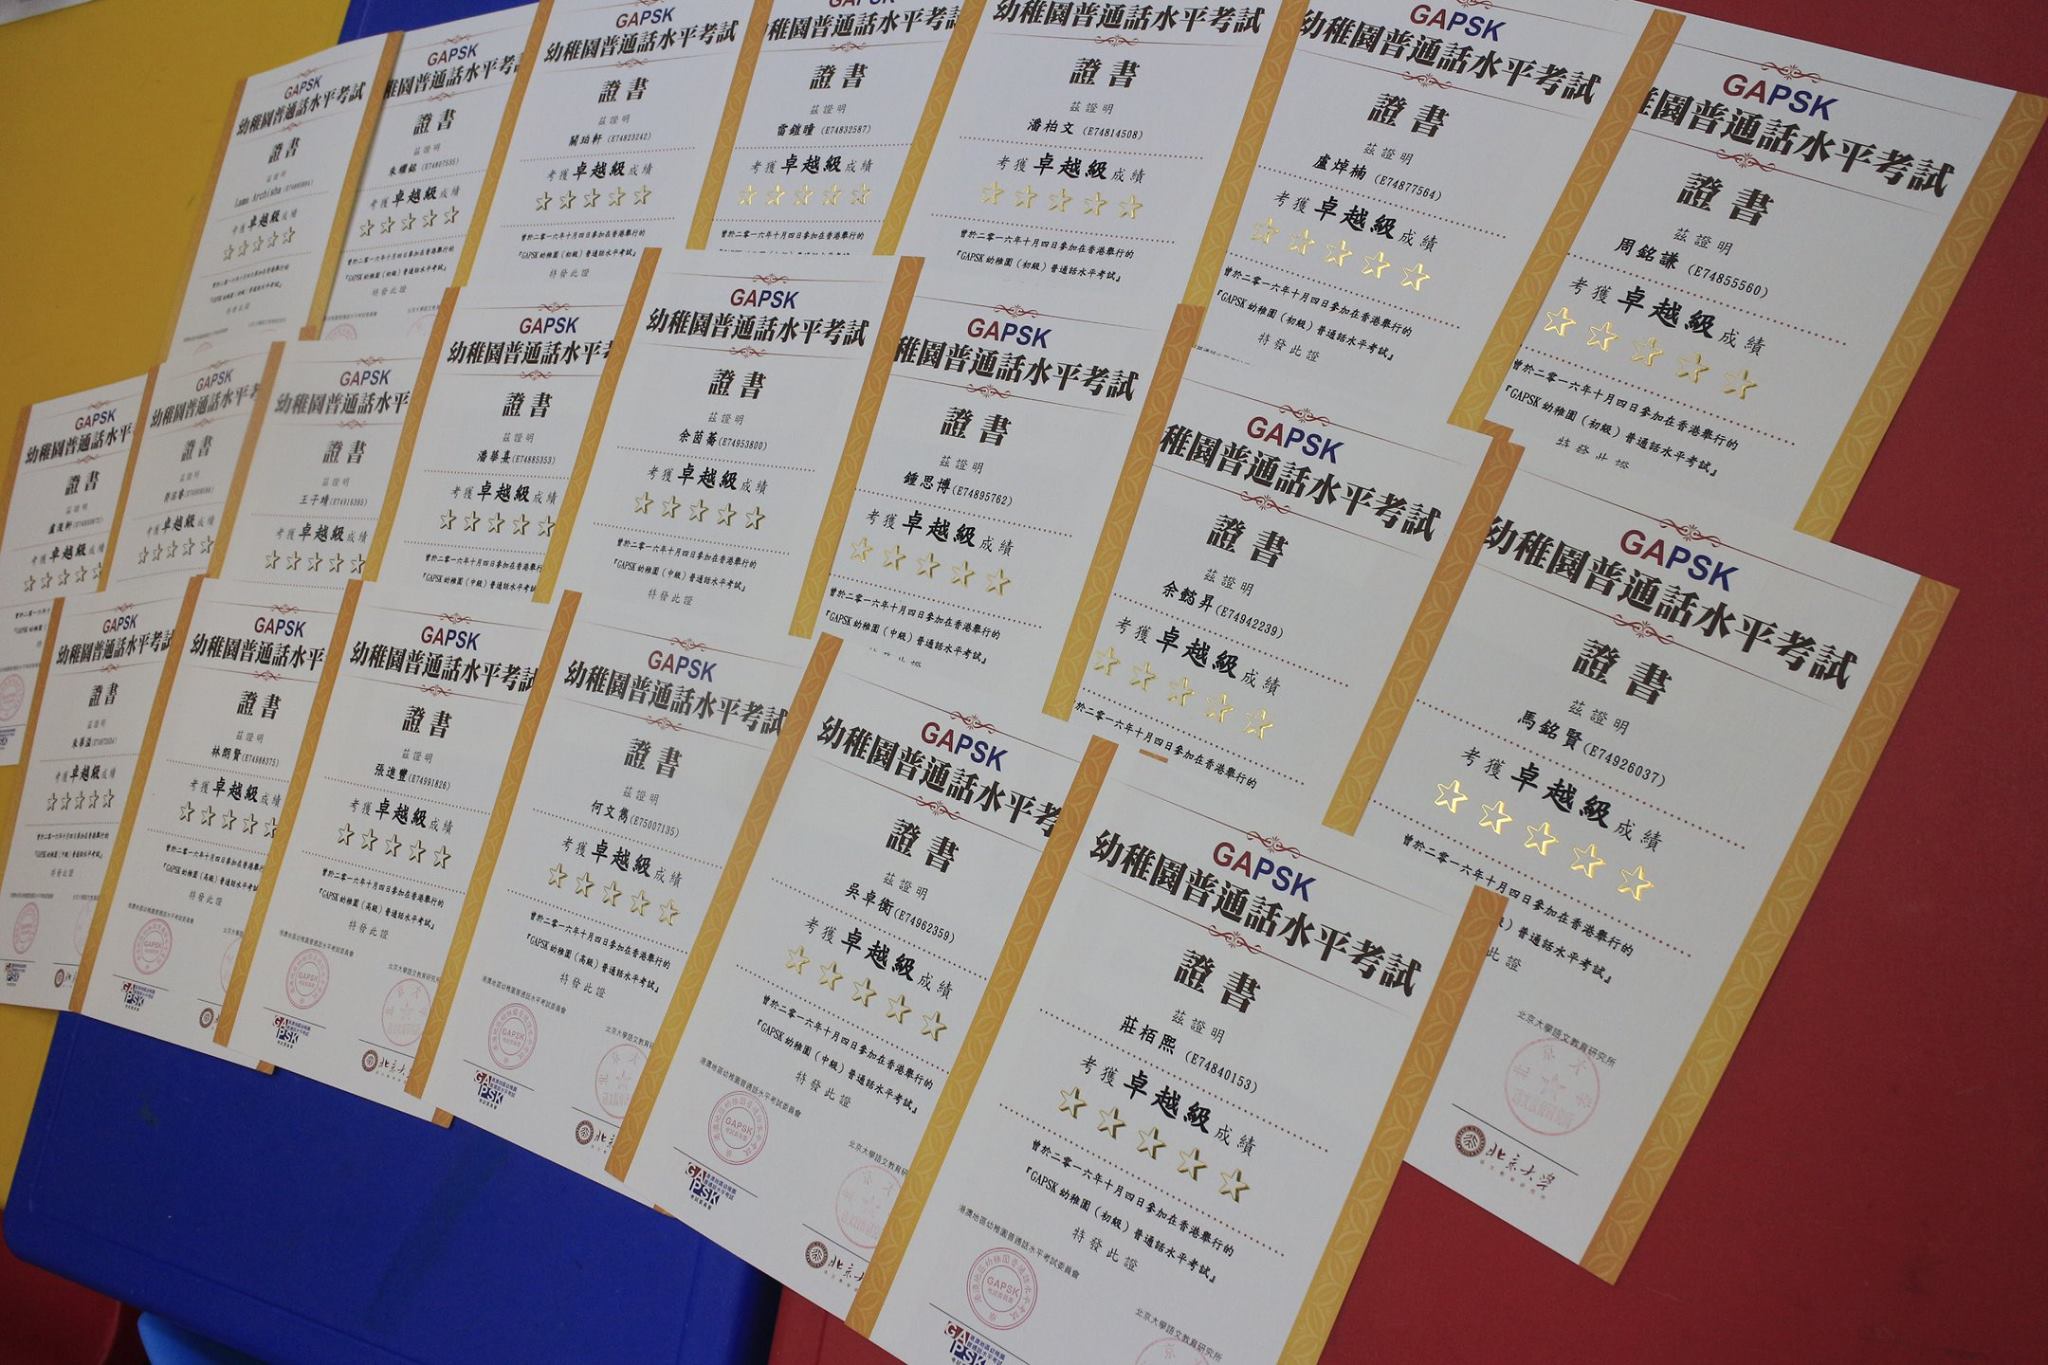 GAPSK
幼稚園普通話水平考試
證書
茲證明
Lama Archisha
考獲卓越級成績
GAPSK
稚園普通話水平考試
證書
茲證明
朱耀銘
考獲卓越級成績
曾於二零一六年十月四日參加在香港舉行的
『GAPSK 幼稚園（初級）普通話水平考試』
特發此證
GAPSK
幼稚園普通話水平考試
證書
茲證明
關珀軒 (E74823242)
考獲卓越級成績
曾於二零一六年十月四日參加在香港舉行的
『GAPSK 幼稚園（初級）普通話水平考試』
特發此證
GAPSK
稚園普通話水平考試
證書
茲證明
雷鎧瞳 (E74832587)
考獲卓越級成績
曾於二零一六年十月四日參加在香港舉行的
幼稚園普通話水平考試
證書
茲證明
潘柏文 (E74814508)
考獲卓越級成績
曾於二零一六年十月四日參加在香港舉行的
『GAPSK 幼稚園（初級）普通話水平考試』
GAPSK
幼稚園普通話水平考試
證書
茲證明
盧焯楠 (E74877564)
考獲卓越級成績
曾於二零一六年十月四日參加在香港舉行的
『GAPSK 幼稚園（初級）普通話水平考試』
特發此證
GAPSK
稚園普通話水平考試
證書
茲證明
周銘謙 (E74855560)
考獲卓越級成績
曾於二零一六年十月四日參加在香港舉行的
『GAPSK 幼稚園（初級）普通話水平考試』
特發此證
GAPSK
幼稚園普通話水平
證書
茲證明
盧俊軒
考獲卓越級成績
GAPSK
幼稚園普通話水平考
證書
茲證明
考獲卓越級成績
GAPSK
幼稚園普通話水平
證書
茲證明
王子靖
考獲卓越級成績
GAPSK
幼稚園普通話水平考
證書
茲證明
潘華熹 (E74885353)
考獲卓越級成績
曾於二零一六年十月四日參加在香港舉行
『GAPSK 幼稚園（中級）普通話水平考試
GAPSK
幼稚園普通話水平考試
證書
茲證明
余茵蕎 (E74953800)
考獲卓越級成績
曾於二零一六年十月四日參加在香港舉行的
『GAPSK 幼稚園（中級）普通話水平考試』
特發此證
GAPSK
稚園普通話水平考試
證書
茲證明
鍾思博 (E74895762)
考獲卓越級成績
曾於二零一六年十月四日參加在香港舉行的
『GAPSK 幼稚園（中級）普通話水平考試』
GAPSK
稚園普通話水平考試
證書
茲證明
余懿昇 (E74942239)
考獲卓越級成績
於二零一六年十月四日參加在香港舉行的
GAPSK
幼稚園普通話水平考試
證書
茲證明
馬銘賢 (E74926037)
考獲卓越級成績
曾於二零一六年十月四日參加在香港舉行的
級）普通話水平考試』
此證
北京大學語文教育研究所
北京大學
GAPSK
幼稚園普通話水平考試
證書
茲證明
朱華溢
考獲卓越級成績
曾於二零一六年十月四日參加在香港舉行的
特發此證
GAPSK
幼稚園普通話水平
證書
茲證明
林朗賢 (E74986375)
考獲卓越級成績
曾於二零一六年十月四日參加在香港舉
『GAPSK 幼稚園（高級）普通話水平考試
特發此證
港澳地區幼稚園普通話水平考試委員會
GAPSK
GAPSK
幼稚園普通話水平考試
證書
茲證明
張進豐 (E74991826)
考獲卓越級成績
曾於二零一六年十月四日參加在香港舉行的
『GAPSK 幼稚園（高級）普通話水平考試』
特發此證
港澳地區幼稚園普通話水平考試委員會
北京大學語文教育研
GAPSK
北京大
GAPSK
幼稚園普通話水平考試
證書
茲證明
何文雋 (E75007135)
考獲卓越級成績
曾於二零一六年十月四日參加在香港舉行的
『GAPSK 幼稚園（高級）普通話水平考試』
特發此證
港澳地區幼稚園普通話水平考試委員會
北京大學語文教育研
GAPSK
北
GAPSK
幼稚園普通話水平考
證書
茲證明
吳卓衡 (E74962359)
考獲卓越級成績
曾於二零一六年十月四日參加在香港舉行的
『GAPSK 幼稚園（中級）普通話水平考試』
特發此證
港澳地區幼稚園普通話水平考試委員會
北京大學語文教育研
GAPSK
北京大
GAPSK
幼稚園普通話水平考試
證書
茲證明
莊栢熙 (E74840153)
考獲卓越級成績
曾於二零一六年十月四日參加在香港舉行的
『GAPSK 幼稚園（初級）普通話水平考試』
特發此證
港澳地區幼稚園普通話水平考試委員會
北京大學語文教育研究所
GAPSK